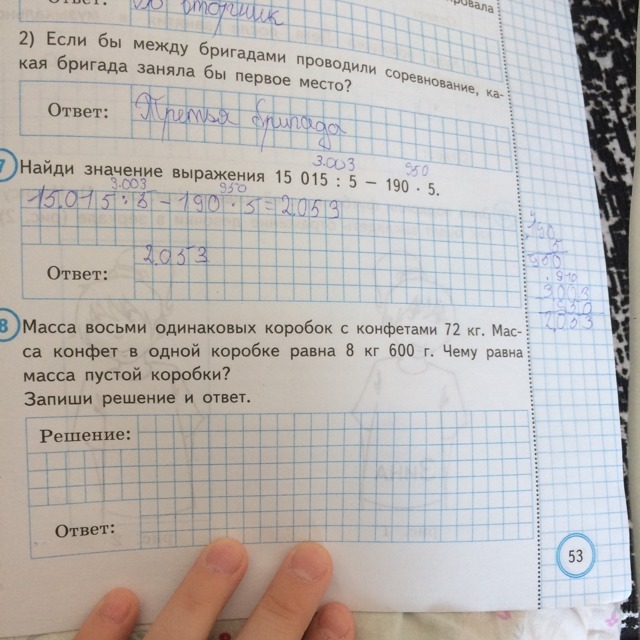 Ответ: Во вторник
2) Если бы между бригадами проводили соревнование, ка-
кая бригада заняла бы первое место?
Ответ: Третья бригада
7 Найди значение выражения 15 015 : 5 – 190 · 5.
3.003 950
3.003 950
15.015 : 5 – 190 · 5 = 2053
2053
Ответ:
190
5
950
950
3003
950
2053
8 Масса восьми одинаковых коробок с конфетами 72 кг. Мас-
са конфет в одной коробке равна 8 кг 600 г. Чему равна
масса пустой коробки?
Запиши решение и ответ.
Решение:
Ответ:
53